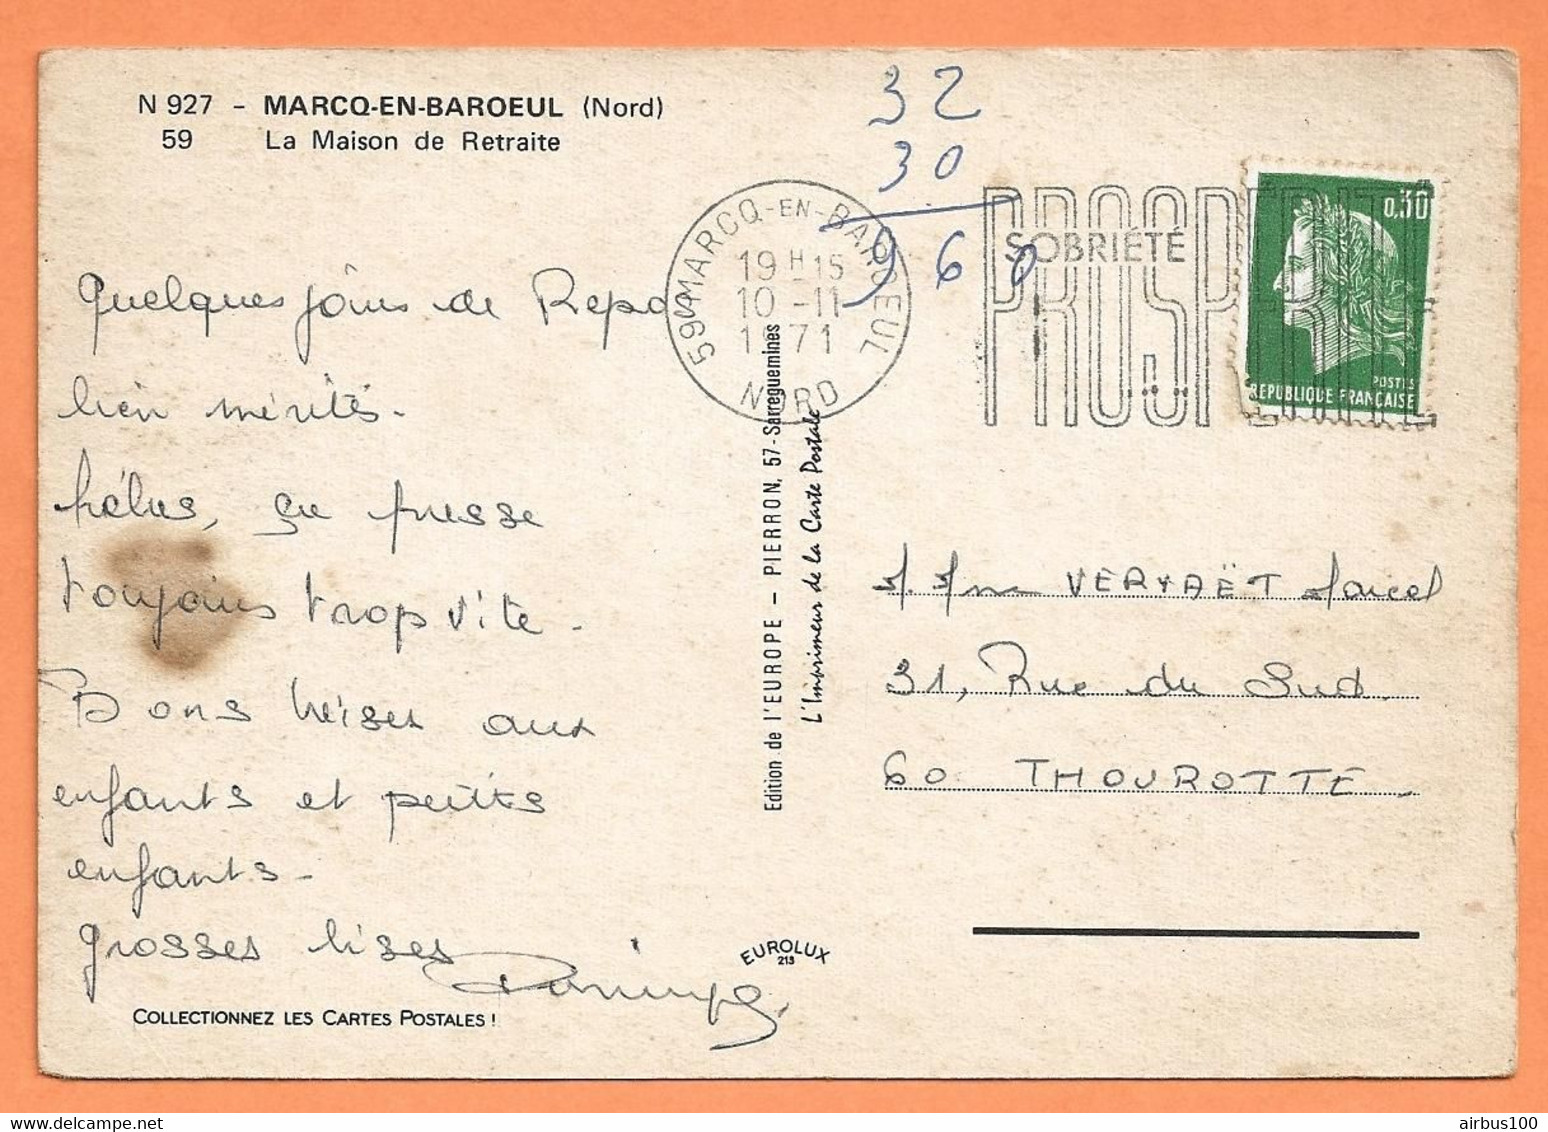 N 927 - MARCQ-EN-BAROEUL (Nord)
59 La Maison de Retraite
32
30
960
59 MARCQ-EN-BAROEUL
19 H 15
10-11
1971
NORD
SOBRIÉTÉ
PROSPÉRITÉ
PROSPÉRITÉ
0,30
POSTES
REPUBLIQUE FRANÇAISE
Quelques jours de Repos
bien mérités.
hélas, ça presse
toujours trop vite.
Bons beises aux
enfants et petits
enfants.
grosses bises
COLLECTIONNEZ LES CARTES POSTALES !
Edition de l'EUROPE - PIERRON, 57 - Sarreguemines
L'Imprimeur de la Carte Postale
EUROLUX
213
M. Mme Marcel
31, Rue du Sud
60 THOUROTTE
airbus100